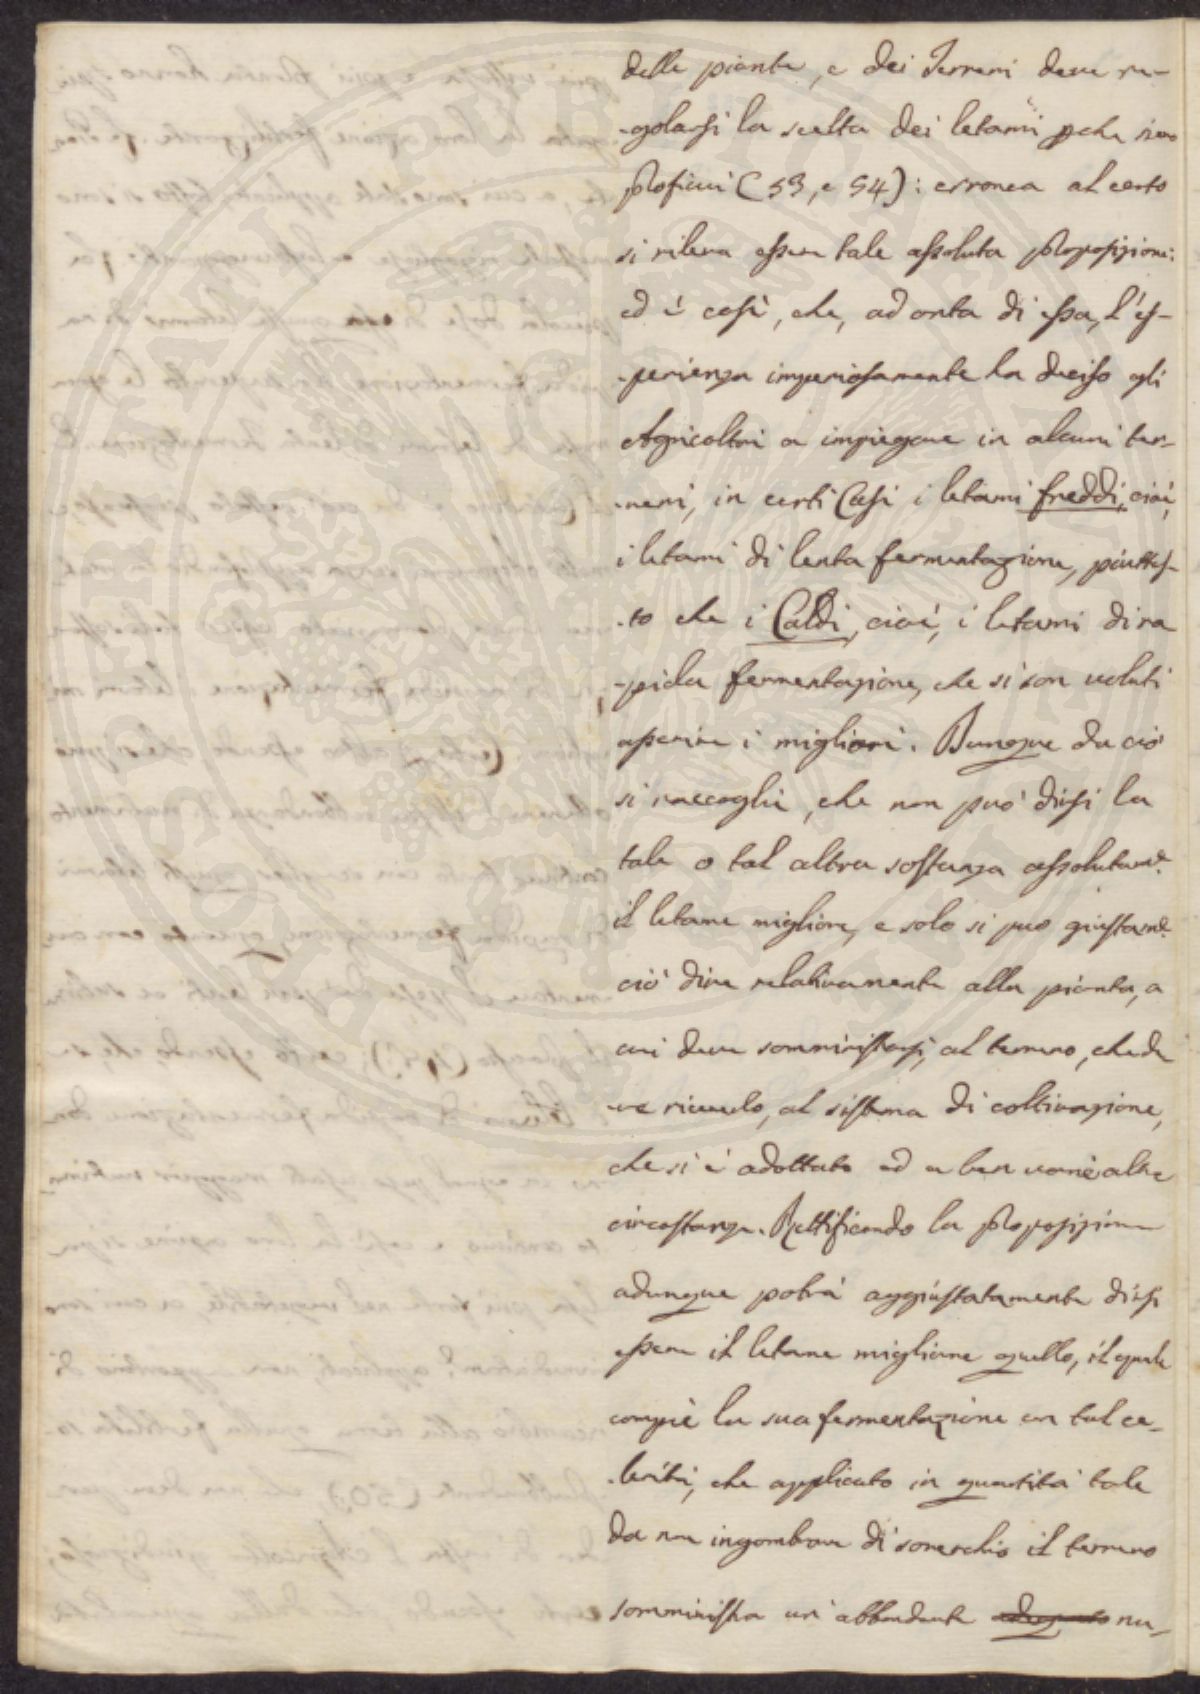 delle piante, e dei Terreni deve re-
-golarsi la scelta dei letami pche sieno
proficui (53, e 54): erronea al certo
si rileva esser tale assoluta proposizione:
ed è così, che, ad onta di essa, l'es-
-perienza imperiosamente ha deciso gli
Agricoltori a impiegare in alcuni ter-
-reni, in certi Casi i letami freddi, cioè,
i letami di lenta fermentazione, piuttos-
-to che i Caldi, cioè, i letami di ra
-pida fermentazione, che si son voluti
asserire i migliori. Dunque da ciò
si raccoglie, che non può dirsi la
tale o tal altra sostanza assolutam.e
il letame migliore, e solo si può giustam.e
ciò dire relativamente alla pianta, a
cui deve somministrarsi, al terreno, che de
-ve riceverlo, al sistema di coltivazione,
che si è adottato ed a ben varie altre
circostanze. Rettificando la proposizione
adunque potrà aggiustatamente dirsi
essere il letame migliore quello, il quale
compiè la sua fermentazione con tal ce-
-lerità, che applicato in quantità tale
da non ingombrare di soverchio il terreno
somministra un' abbondante adequato nu-